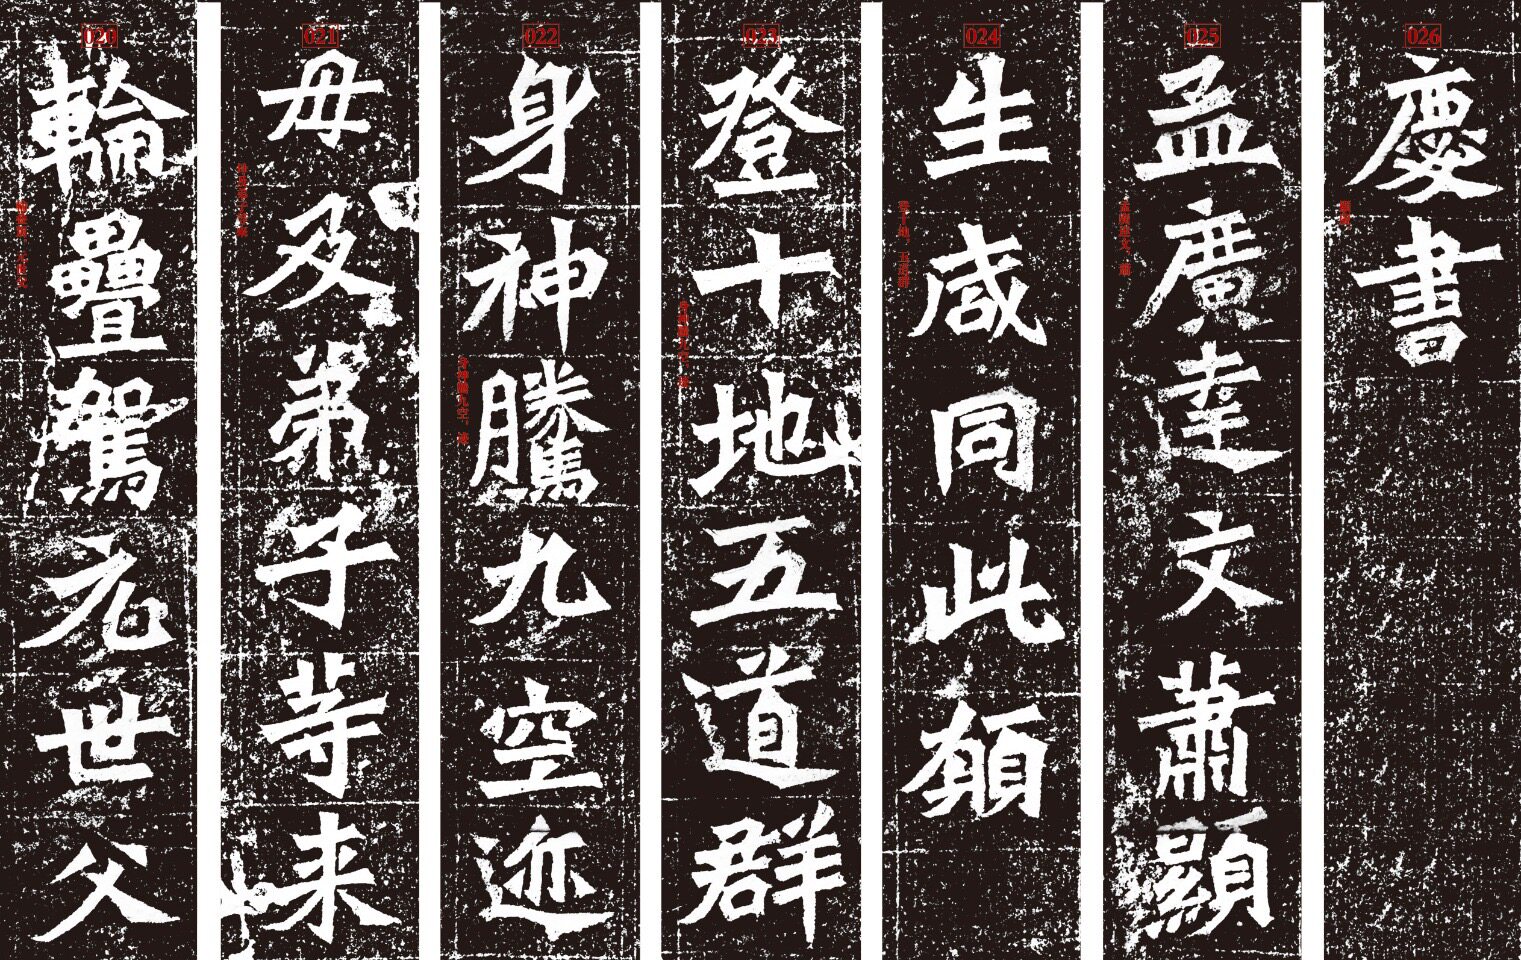 020
輪疊駕元世父
021
母及弟子等来
022
身神騰九空迹
023
登十地五道群
024
生咸同此願
025
孟廣達文蕭顯
026
慶書
身神騰九空，迹